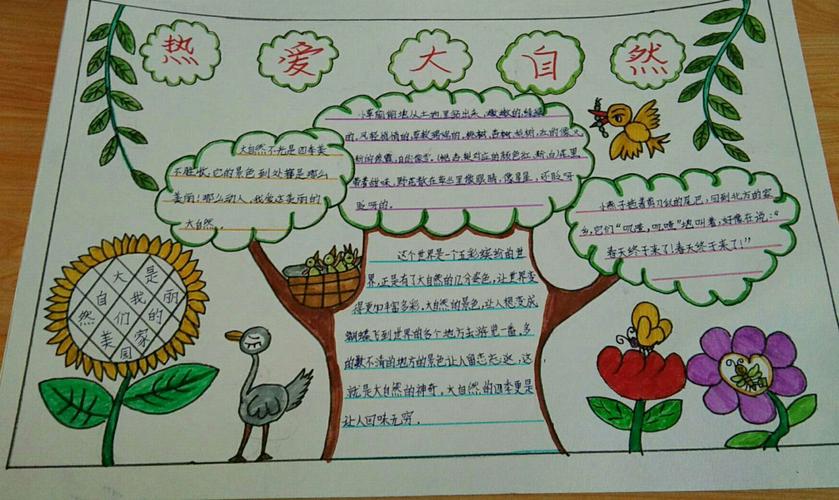 热爱大自然
大自然不光是四季美
不胜收,它的景色到处都是那么
美丽!那么动人,我爱这美丽的
大自然。
小草偷偷地从土地里钻出头,嫩嫩的绿绿
的,风轻悄悄的,草软绵绵的,桃树,杏树,梨树,红的像火
粉的像霞,白的像雪,
带着甜味,野花散在草丛里像眼睛,像星星,还眨呀
眨呀的。
小燕子拖着剪刀似的尾巴,回到北方的家
乡,它们“叽喳,叽喳”地叫着,好像在说:“
春天终于来了!春天终于来了!”
这个世界是一个五彩缤纷的世
界,正是有了大自然的几分姿色,让世界变
得更加丰富多彩,大自然的景色,让人想变成
蝴蝶飞到世界的各个地方去游览一番,多
的数不清的地方的景色让人留恋忘返,这
就是大自然的神奇,大自然的四季更是
让人回味无穷。
大是
自我丽
然们的
美家
国